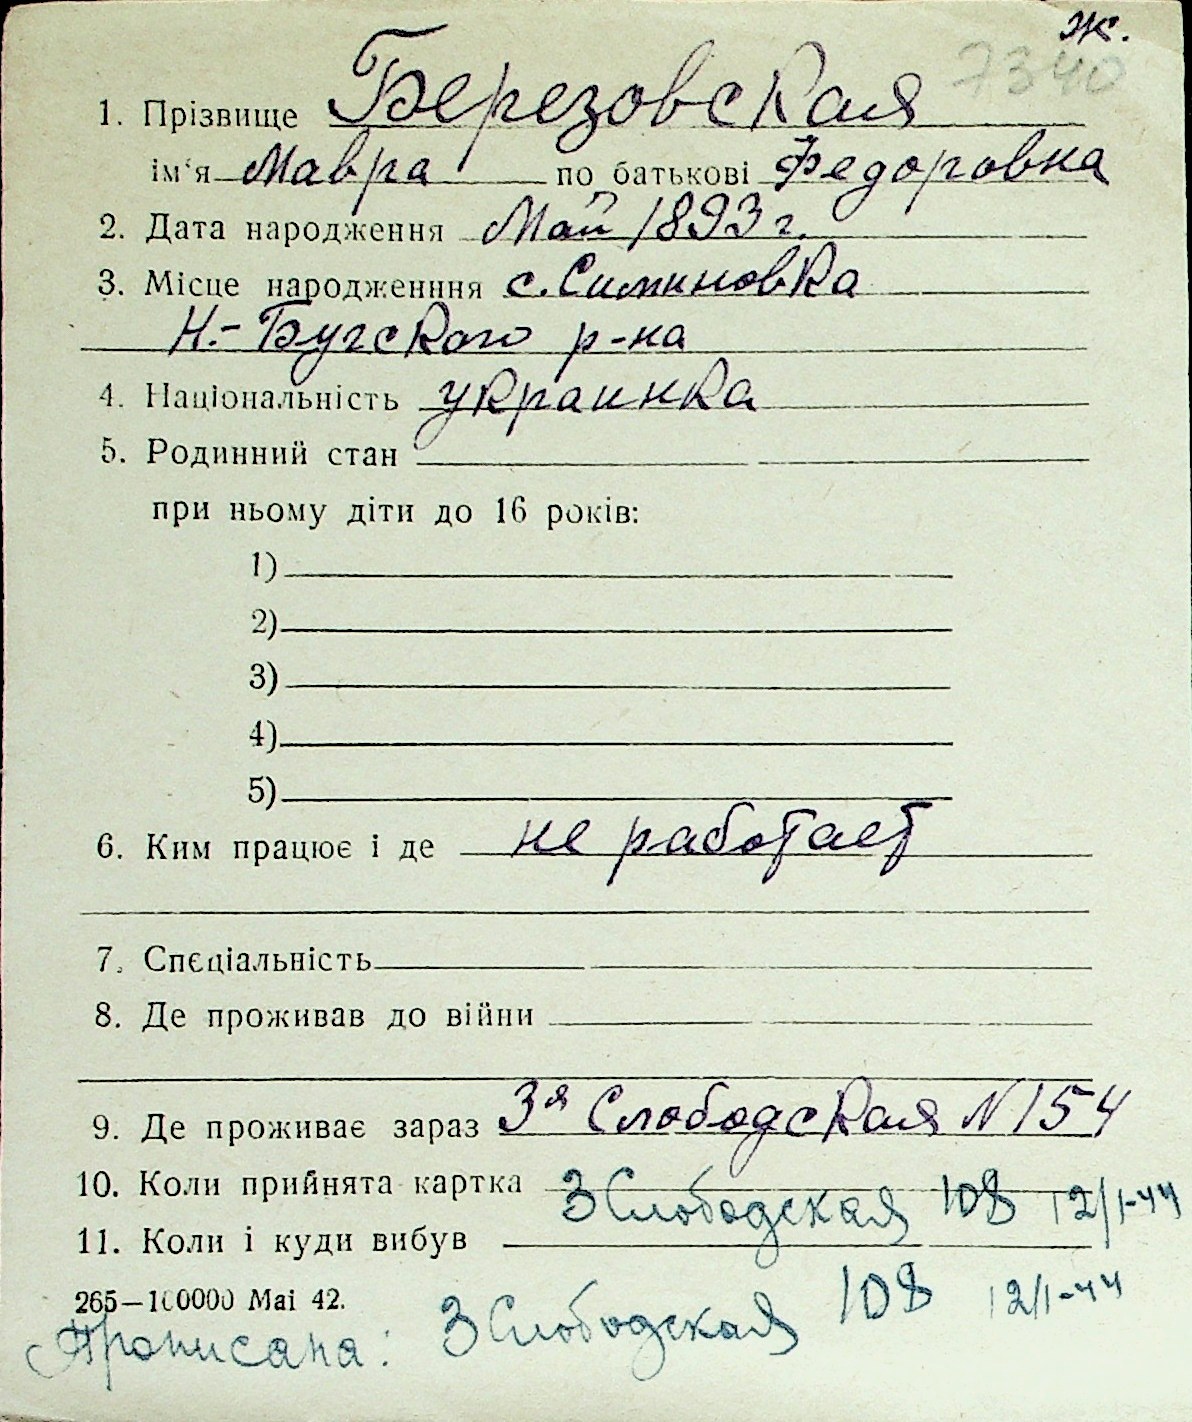 ж.
7340
1. Прізвище Березовская
ім'я Мавра по батькові Федоровна
2. Дата народження Май 1893 г.
3. Місце народженння с. Симиновка
Н.-Бугского р-на
4. Національність украинка
5. Родинний стан
при ньому діти до 16 років:
1)
2)
3)
4)
5)
6. Ким працює і де не работает
7. Спєціальність
8. Де проживав до війни
9. Де проживає зараз 3я Слободская N 154
10. Коли прийнята картка 3 Слободская 108 12/I-44
11. Коли і куди вибув
265—100000 Mai 42.
Прописана: 3 Слободская 108 12/I-44